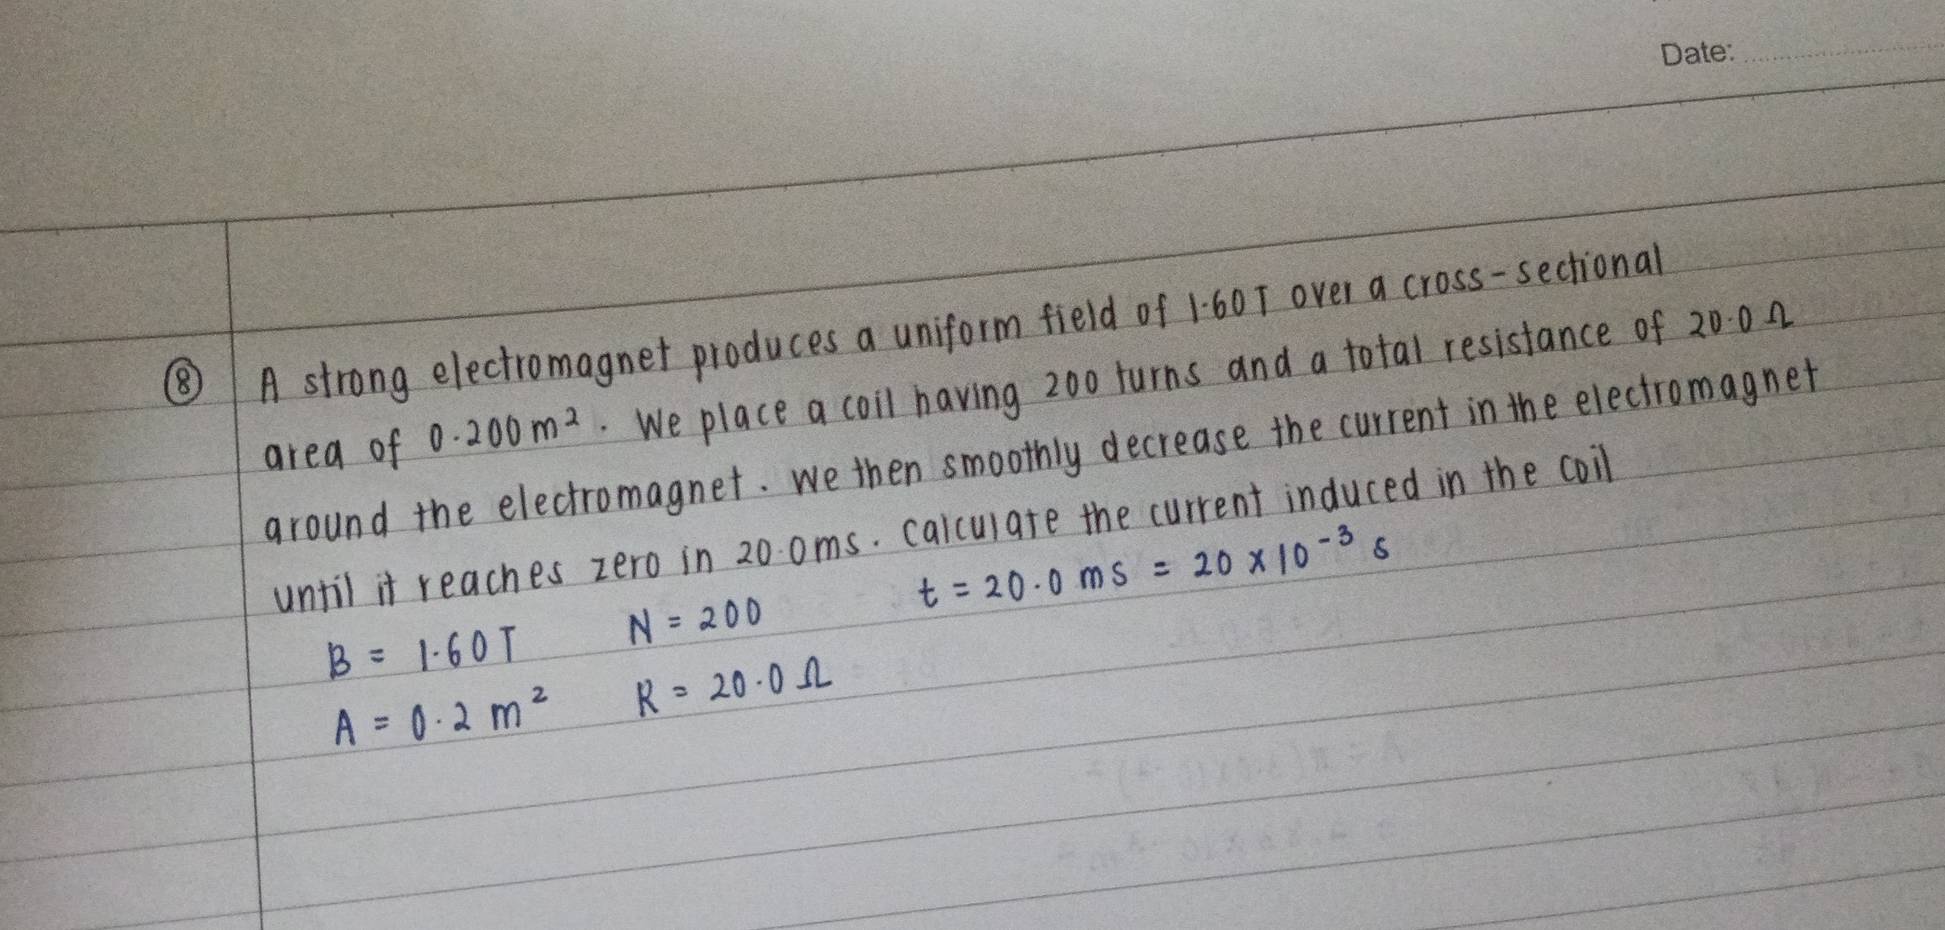 Date:
⑧ A strong electromagnet produces a uniform field of 1.60T over a cross-sectional
area of 0.200m². We place a coil having 200 turns and a total resistance of 20.0Ω
around the electromagnet. We then smoothly decrease the current in the electromagnet
until it reaches zero in 20.0ms. Calculate the current induced in the coil
B = 1.60T N = 200 t = 20.0 ms = 20 × 10⁻³ s
A = 0.2 m² R = 20.0 Ω